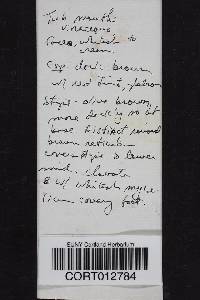 Tube mouths
vinaceous
Pores, whitish to
cream.
Cap dark brown
w/ red tints,
Stipe - olive brown,
more deeply so at
base distinct raised
brown reticul-
covers stipe to lower
clavate
& w/ whitish myce-
lium covering foot.
SUNY Cortland Herbarium
CORT012784